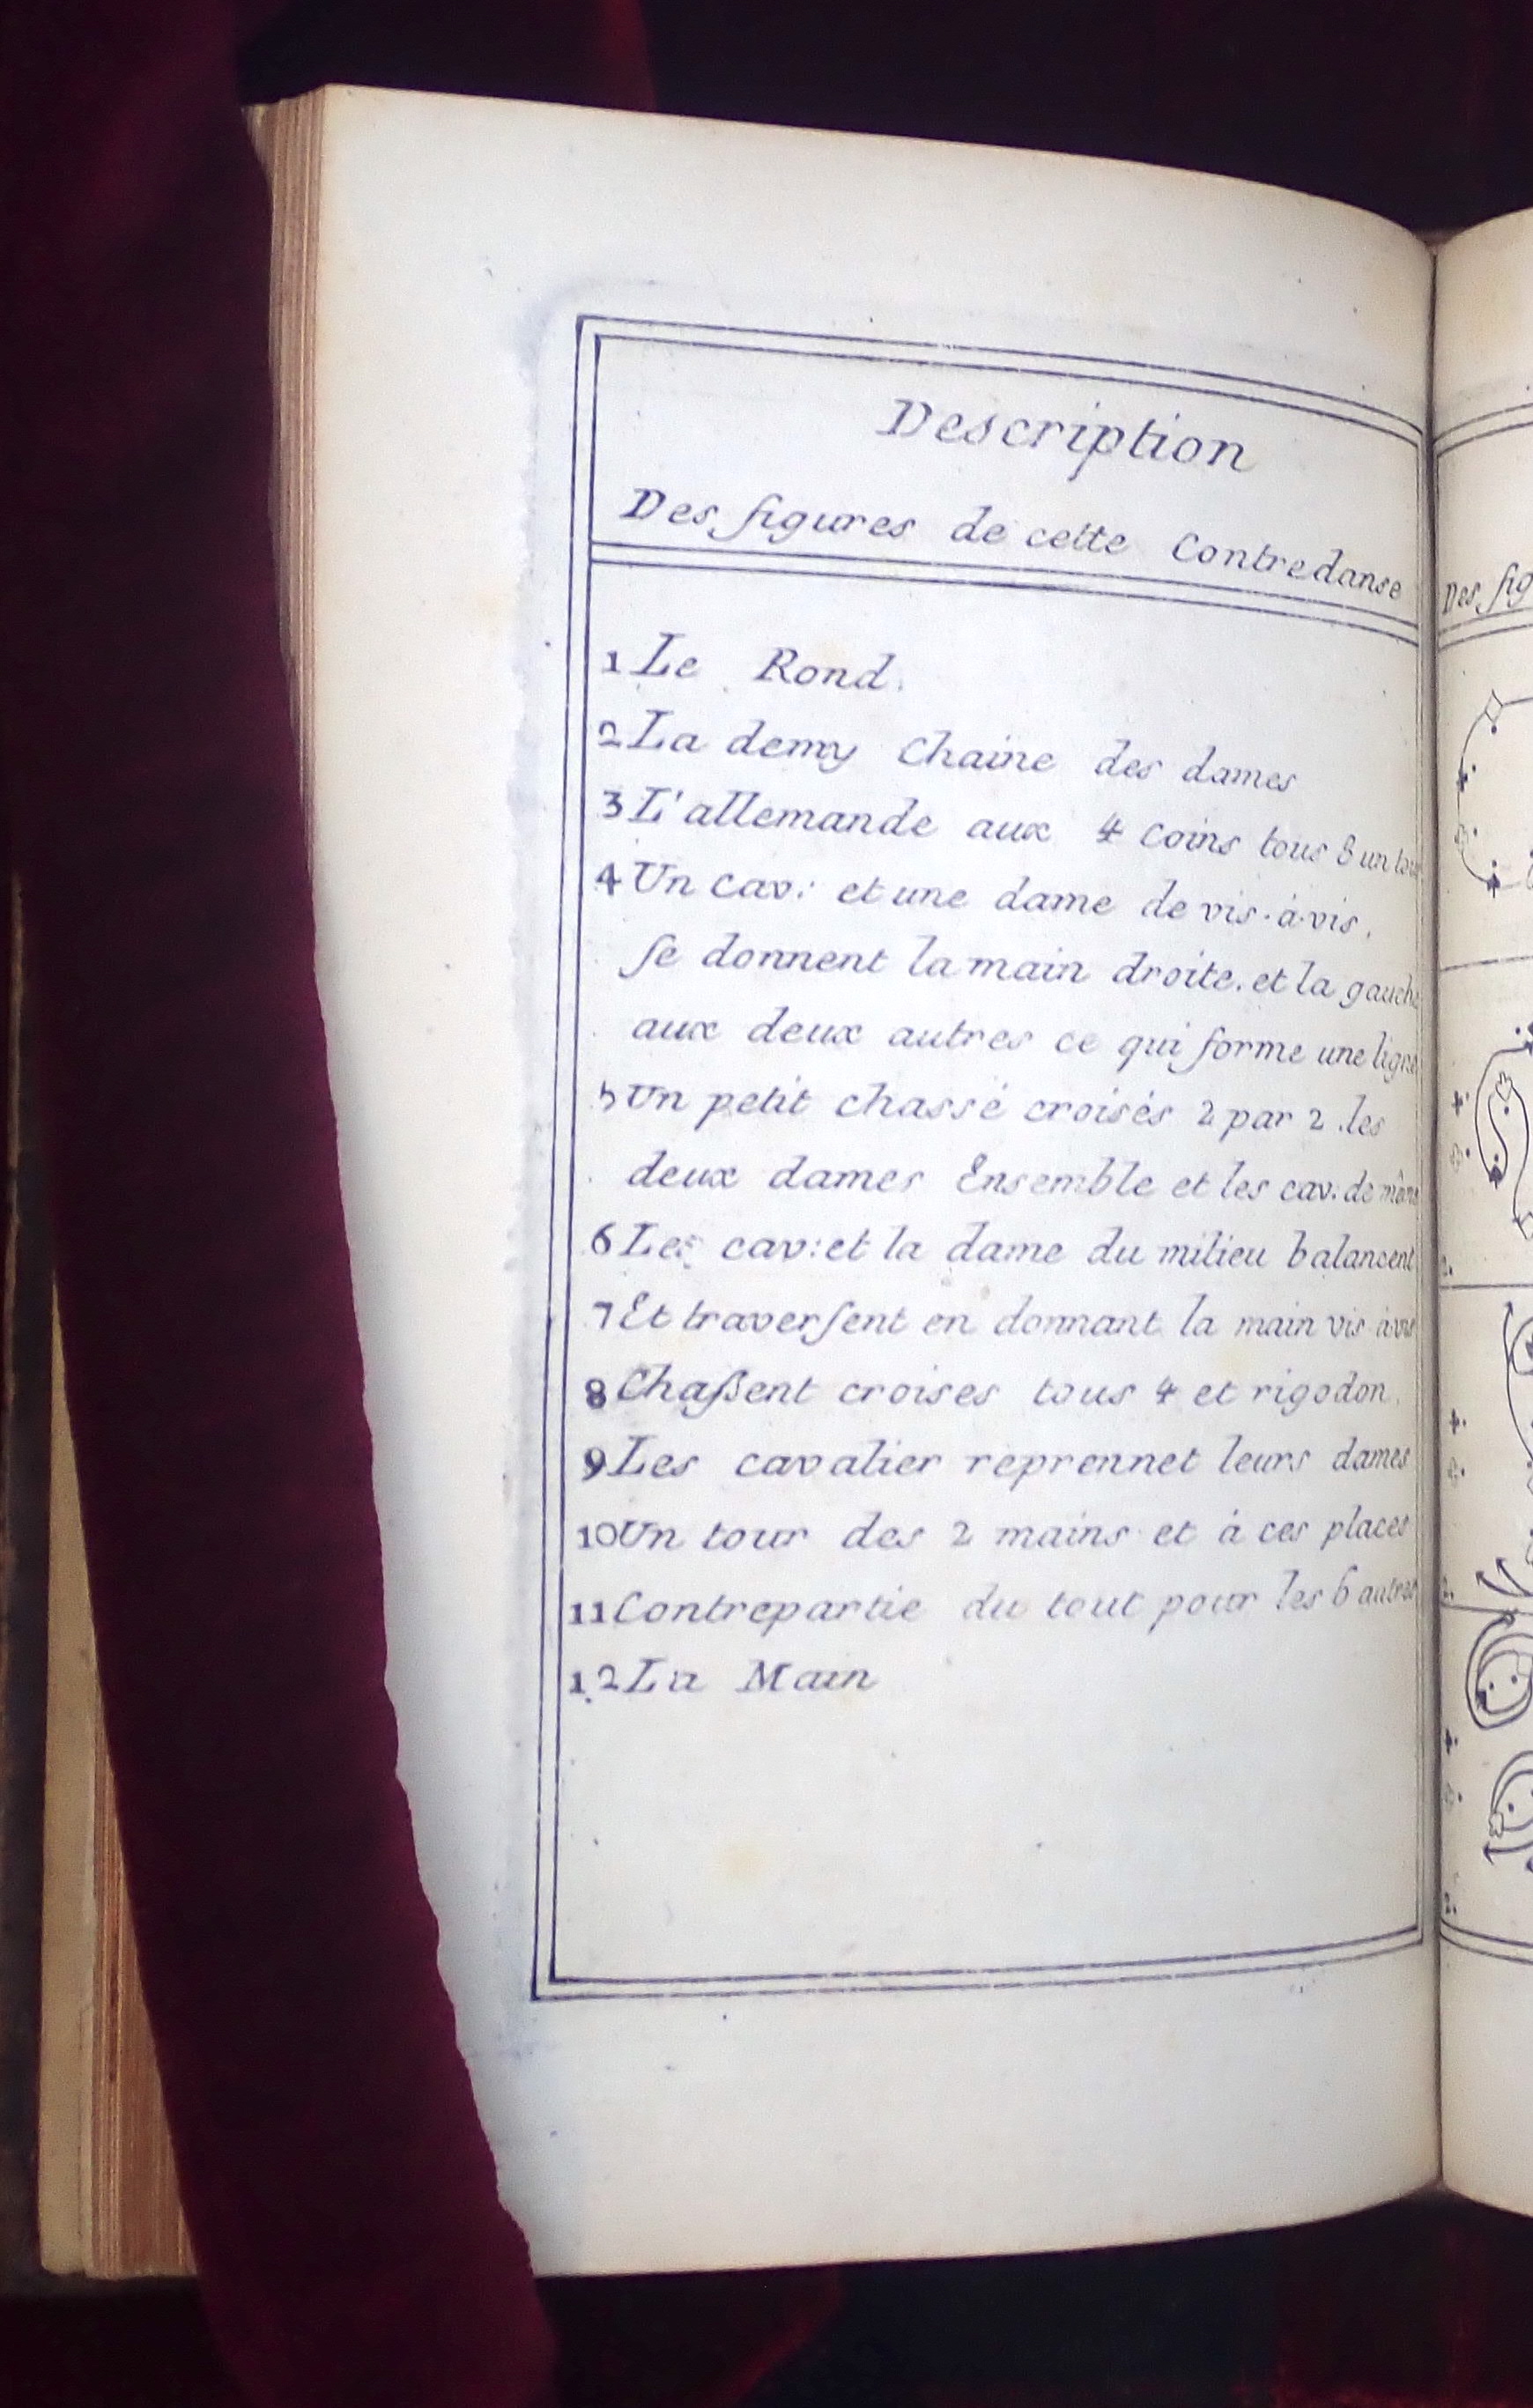 Description
Des figures de cette Contredanse
1 Le Rond.
2 La demy Chaine des dames
3 L'allemande aux 4 Coins tous 8 un tour
4 Un cav: et une dame de vis-à-vis,
se donnent la main droite. et la gauche
aux deux autres ce qui forme une ligne
5 Un petit chassé croisés 2 par 2 .les
deux dames Ensemble et les cav: de même
6 Les cav: et la dame du milieu balancent
7 Et traversent en donnant la main vis à vis
8 Chaßent croises tous 4 et rigodon.
9 Les cavalier reprennet leurs dames
10 Un tour des 2 mains et à ces places
11 Contrepartie du tout pour les 6 autres
12 La Main
Des fig
2.
2.
2.